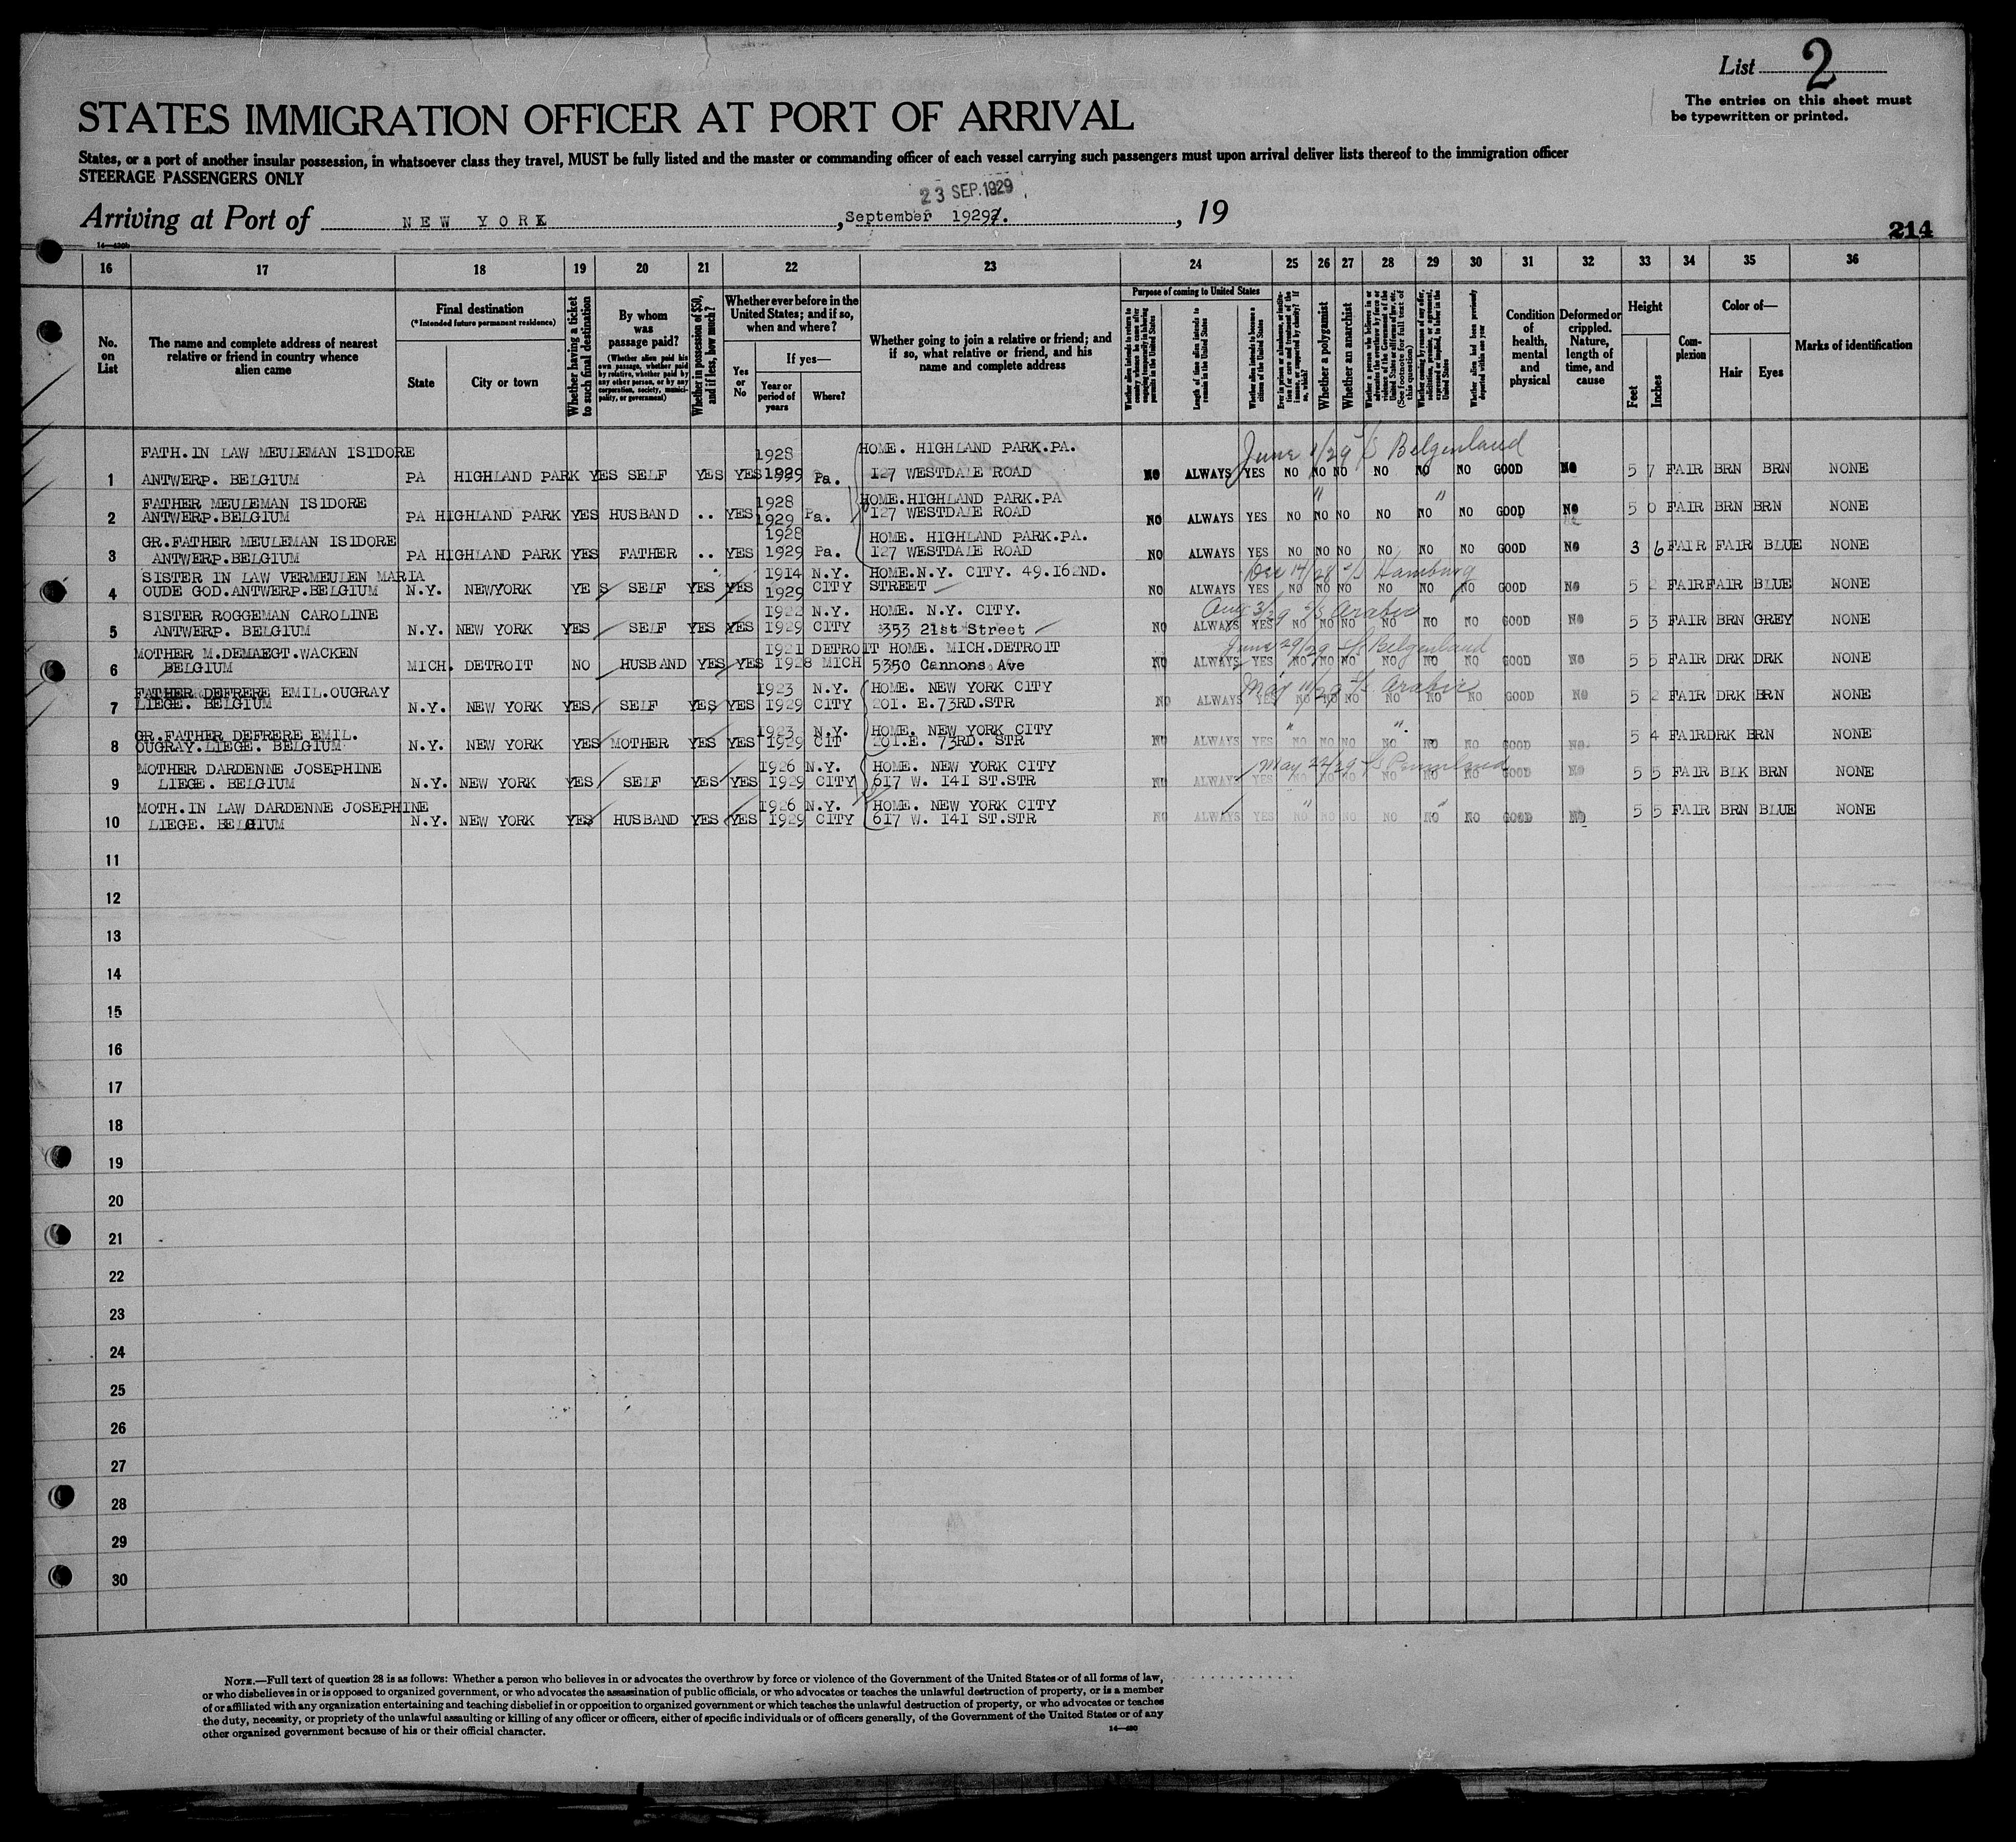 List 2
The entries on this sheet must
be typewritten or printed.
STATES IMMIGRATION OFFICER AT PORT OF ARRIVAL
States, or a port of another insular possession, in whatsoever class they travel, MUST be fully listed and the master or commanding officer of each vessel carrying such passengers must upon arrival deliver lists thereof to the immigration officer
STEERAGE PASSENGERS ONLY
23 SEP. 1929
Arriving at Port of NEW YORK, September 1929, 19
214
14—430b
16 17 18 19 20 21 22 23 24 25 26 27 28 29 30 31 32 33 34 35 36
No. on List
The name and complete address of nearest relative or friend in country whence alien came
Final destination
(*Intended future permanent residence)
State
City or town
Whether having a ticket to such final destination
By whom was passage paid?
(Whether alien paid his own passage, whether paid by relative, whether paid by any other person, or by any corporation, society, municipality, or government)
Whether in possession of $50, and if less, how much?
Whether ever before in the United States; and if so, when and where?
Yes or No
If yes—
Year or period of years
Where?
Whether going to join a relative or friend; and if so, what relative or friend, and his name and complete address
Purpose of coming to United States
Length of time alien intends to remain in the United States
Whether alien intends to become a citizen of the United States
Whether a polygamist
Whether an anarchist
(See footnote for full text of this question)
Whether alien had been previously deported within one year
Condition of health, mental and physical
Deformed or crippled. Nature, length of time, and cause
Height
Feet
Inches
Complexion
Color of—
Hair
Eyes
Marks of identification
FATH.IN LAW MEULEMAN ISIDORE 1928 HOME. HIGHLAND PARK.PA. June 1/29 S/S Belgenland
1 ANTWERP. BELGIUM PA HIGHLAND PARK YES SELF YES YES 1929 Pa. I27 WESTDALE ROAD NO ALWAYS YES NO NO NO NO NO NO GOOD NO 5 7 FAIR BRN BRN NONE
FATHER MEULEMAN ISIDORE 1928 HOME.HIGHLAND PARK.PA " "
2 ANTWERP.BELGIUM PA HIGHLAND PARK YES HUSBAND .. YES 1929 Pa. I27 WESTDALE ROAD NO ALWAYS YES NO NO NO NO NO NO GOOD NO 5 0 FAIR BRN BRN NONE
GR.FATHER MEULEMAN ISIDORE 1928 HOME. HIGHLAND PARK.PA.
3 ANTWERP.BELGIUM PA HIGHLAND PARK YES FATHER .. YES 1929 Pa. I27 WESTDALE ROAD NO ALWAYS YES NO NO NO NO NO NO GOOD NO 3 6 FAIR FAIR BLUE NONE
SISTER IN LAW VERMEULEN MARIA 1914 N.Y. HOME.N.Y. CITY. 49.162ND. Dec 14/28 S/S Hamburg
4 OUDE GOD.ANTWERP.BELGIUM N.Y. NEWYORK YES SELF YES YES 1929 CITY STREET NO ALWAYS YES NO NO NO NO NO NO GOOD NO 5 2 FAIR FAIR BLUE NONE
SISTER ROGGEMAN CAROLINE 1922 N.Y. HOME. N.Y. CITY. Aug 3/29 S/S Arabic
5 ANTWERP. BELGIUM N.Y. NEW YORK YES SELF YES YES 1929 CITY 353 21st Street NO ALWAYS YES NO NO NO NO NO NO GOOD NO 5 3 FAIR BRN GREY NONE
MOTHER M.DEMAEGT.WACKEN 1921 DETROIT HOME. MICH.DETROIT June 29/29 S/S Belgenland
6 BELGIUM MICH. DETROIT NO HUSBAND YES YES 1928 MICH 5350 Cannons Ave NO ALWAYS YES NO NO NO NO NO NO GOOD NO 5 5 FAIR DRK DRK NONE
FATHER DEFRERE EMIL.OUGRAY 1923 N.Y. HOME. NEW YORK CITY May 11/29 S/S Arabic
7 LIEGE. BELGIUM N.Y. NEW YORK YES SELF YES YES 1929 CITY 201. E.73RD.STR NO ALWAYS YES NO NO NO NO NO NO GOOD NO 5 2 FAIR DRK BRN NONE
GR.FATHER DEFRERE EMIL. 1923 N.Y. HOME. NEW YORK CITY " "
8 OUGRAY.LIEGE. BELGIUM N.Y. NEW YORK YES MOTHER YES YES 1929 CIT 201.E. 73RD. STR NO ALWAYS YES NO NO NO NO NO NO GOOD NO 5 4 FAIR DRK BRN NONE
MOTHER DARDENNE JOSEPHINE 1926 N.Y. HOME. NEW YORK CITY May 22/29 S/S Pennland
9 LIEGE. BELGIUM N.Y. NEW YORK YES SELF YES YES 1929 CITY 617 W. I41 ST.STR NO ALWAYS YES NO NO NO NO NO NO GOOD NO 5 5 FAIR BLK BRN NONE
MOTH.IN LAW DARDENNE JOSEPHINE 1926 N.Y. HOME. NEW YORK CITY " "
10 LIEGE. BELGIUM N.Y. NEW YORK YES HUSBAND YES YES 1929 CITY 617 W. I41 ST.STR NO ALWAYS YES NO NO NO NO NO NO GOOD NO 5 5 FAIR BRN BLUE NONE
11
12
13
14
15
16
17
18
19
20
21
22
23
24
25
26
27
28
29
30
NOTE.—Full text of question 28 is as follows: Whether a person who believes in or advocates the overthrow by force or violence of the Government of the United States or of all forms of law,
or who disbelieves in or is opposed to organized government, or who advocates the assassination of public officials, or who advocates or teaches the unlawful destruction of property, or is a member
of or affiliated with any organization entertaining and teaching disbelief in or opposition to organized government or which teaches the unlawful destruction of property, or who advocates or teaches
the duty, necessity, or propriety of the unlawful assaulting or killing of any officer or officers, either of specific individuals or of officers generally, of the Government of the United States or of any
other organized government because of his or their official character.
14—430